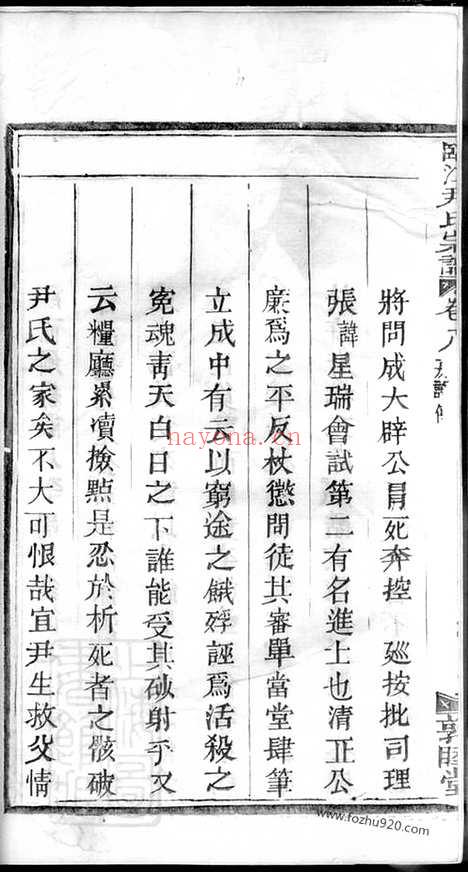 將問成大辟公冒死奔控 廵按批司理
張諱星瑞會試第二有名進士也清正公
廉爲之平反杖懲問徒其審單當堂肆筆
立成中有云以窮途之餓殍誣爲活殺之
寃魂靑天白日之下誰能受其砂射乎又
云糧廳累瀆撿點是忍於析死者之骸破
尹氏之家矣不大可恨哉宜尹生救父情
尹氏宗譜
卷八
敦睦堂
hayona.cn
www.fozhu920.com